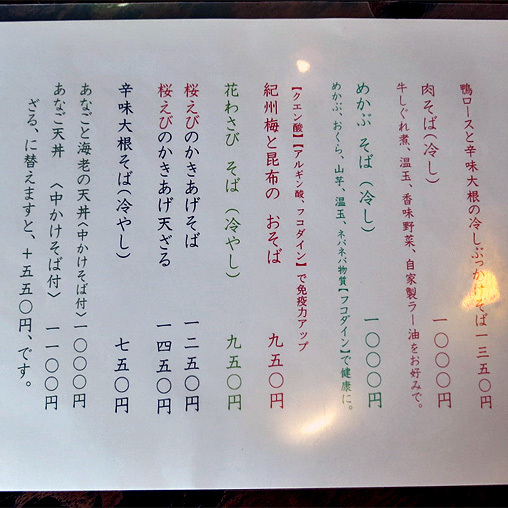 鴨ロースと辛味大根の冷しぶっかけそば 一三五〇円
肉そば(冷し) 一〇〇〇円
牛しぐれ煮、温玉、香味野菜、自家製ラー油をお好みで。
めかぶ そば(冷し) 一〇〇〇円
めかぶ、おくら、山芋、温玉、ネバネバ物質【フコダイン】で健康に。
【クエン酸】【アルギン酸、フコダイン】で免疫力アップ
紀州梅と昆布の おそば 九五〇円
花わさび そば (冷やし) 九五〇円
桜えびのかきあげそば 一二五〇円
桜えびのかきあげ天ざる 一四五〇円
辛味大根そば(冷やし) 七五〇円
あなごと海老の天丼(中かけそば付)一〇〇〇円
あなご天丼 (中かけそば付) 一一〇〇円
ざる、に替えますと、+五五〇円、です。